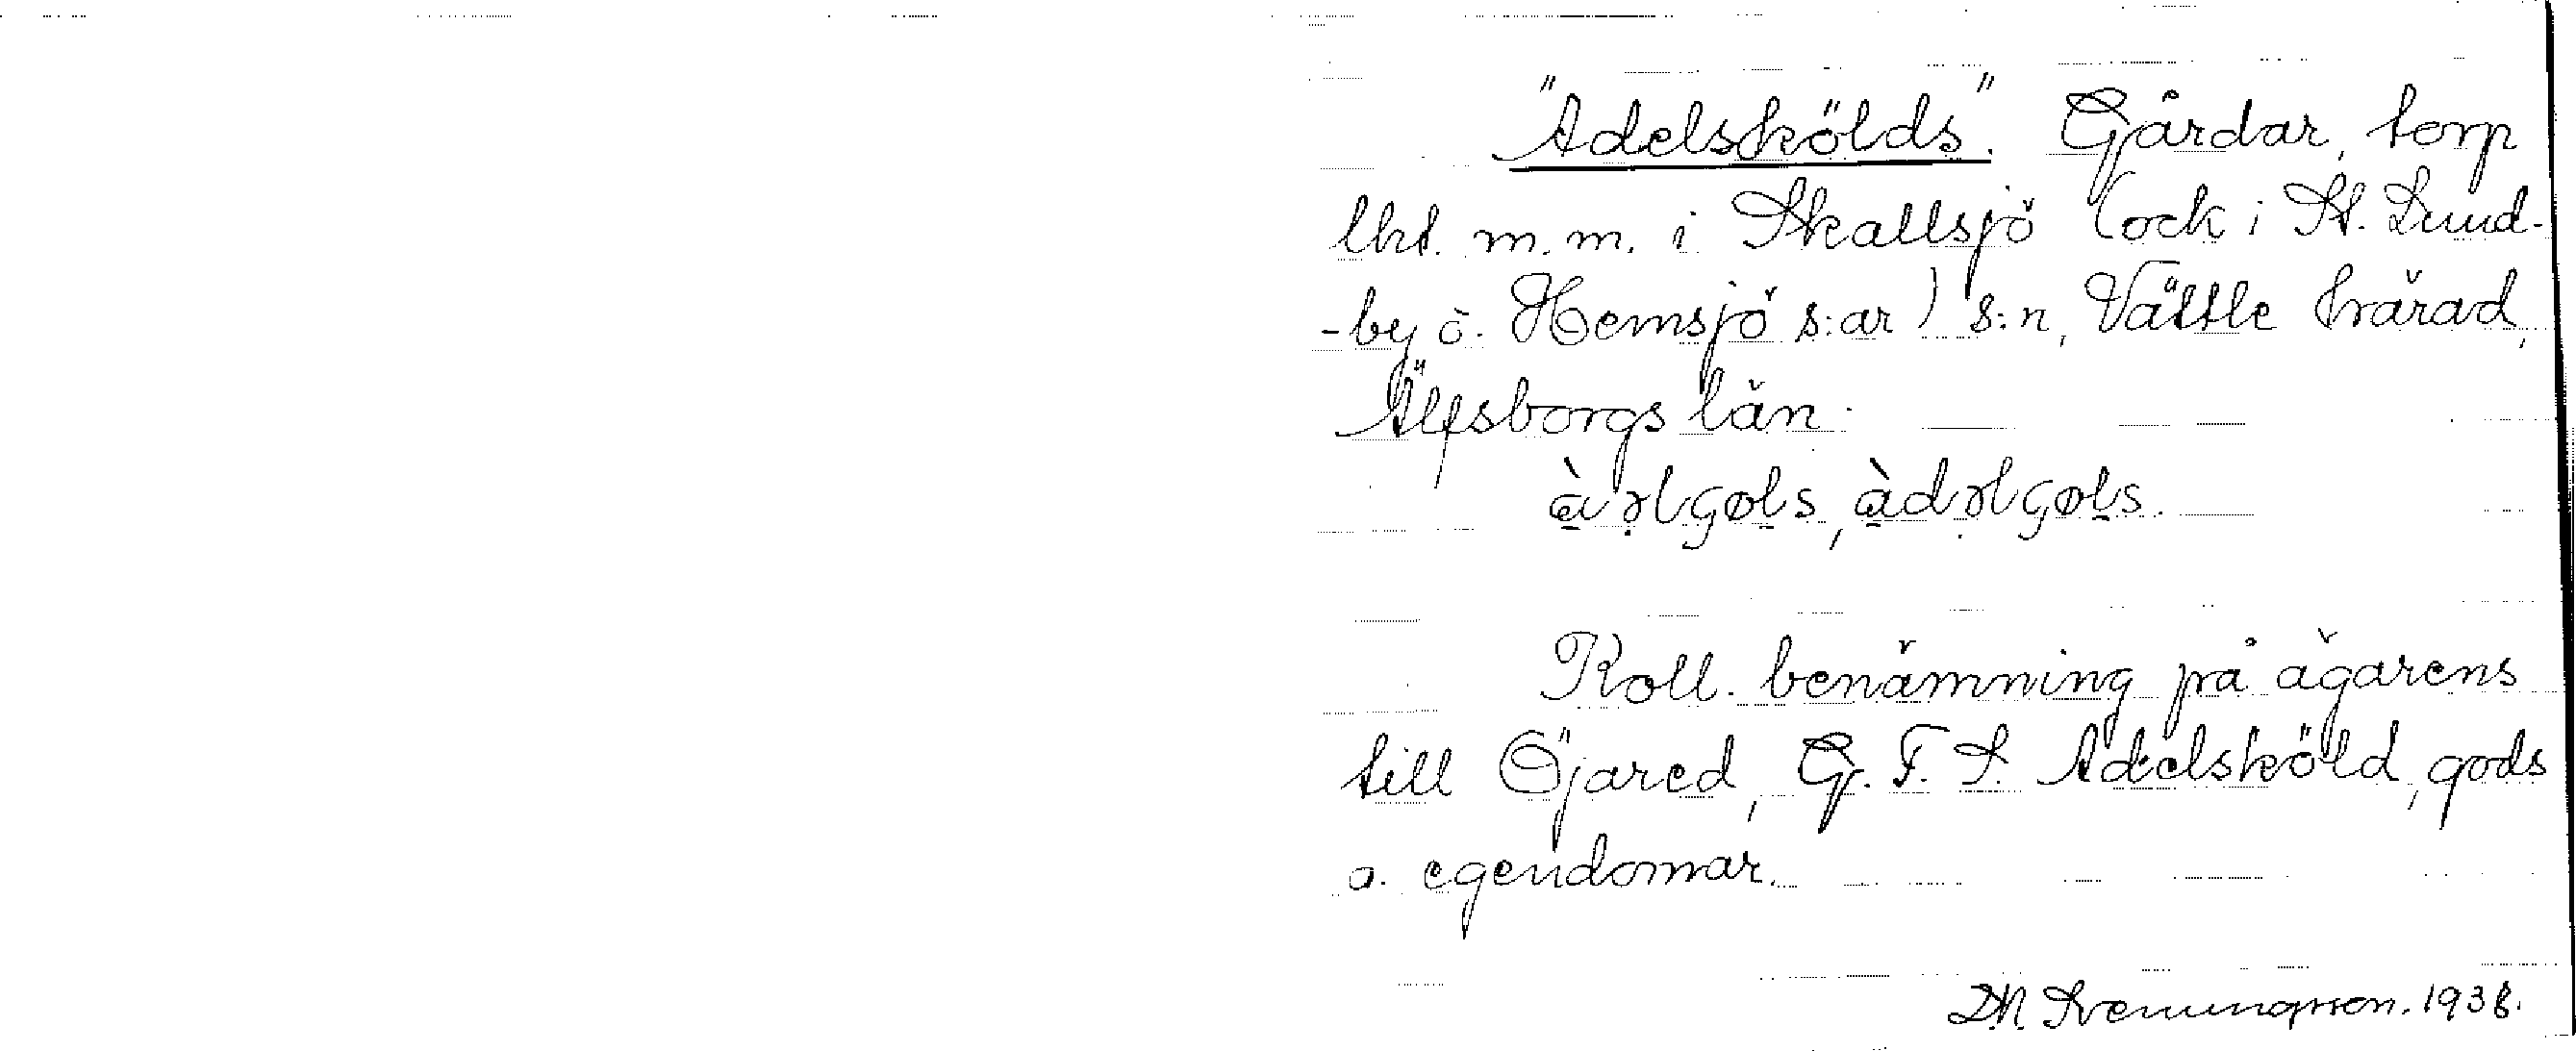 "Adelskölds". Gårdar, torp
lht. m.m. i Skallsjö (ock i St. Lund-
-by o. Hemsjö s:ar) s:n, Vättle härad,
Älfsborgs län.
Koll. benämning på ägarens
till Öjared, G. F. S. Adelsköld, gods
o. egendomar.
Sveningsson. 1938.